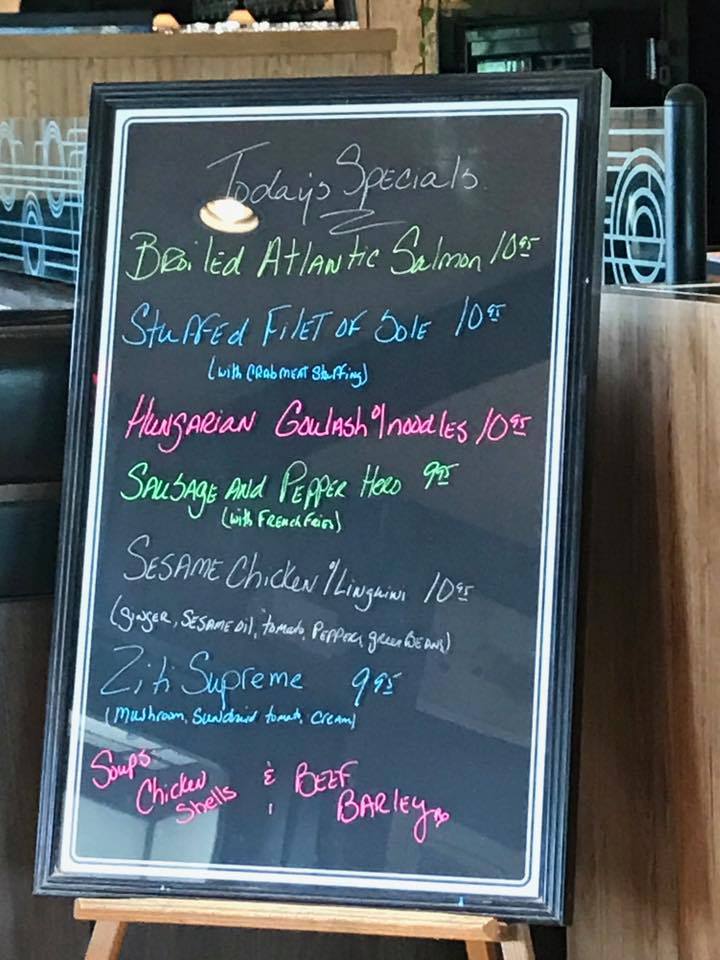 Todays Specials
Broiled Atlantic Salmon 10.95
Stuffed Filet of Sole 10.95
(with crabmeat stuffing)
Hungarian Goulash o/noodles 10.95
Sausage and Pepper Hero 9.95
(with French Fries)
Sesame Chicken o/Linguini 10.95
(ginger, sesame oil, tomato, peppers, green beans)
Ziti Supreme 9.95
(mushroom, sundried tomato, cream)
Soups & Beef
Chicken Barley
Shells